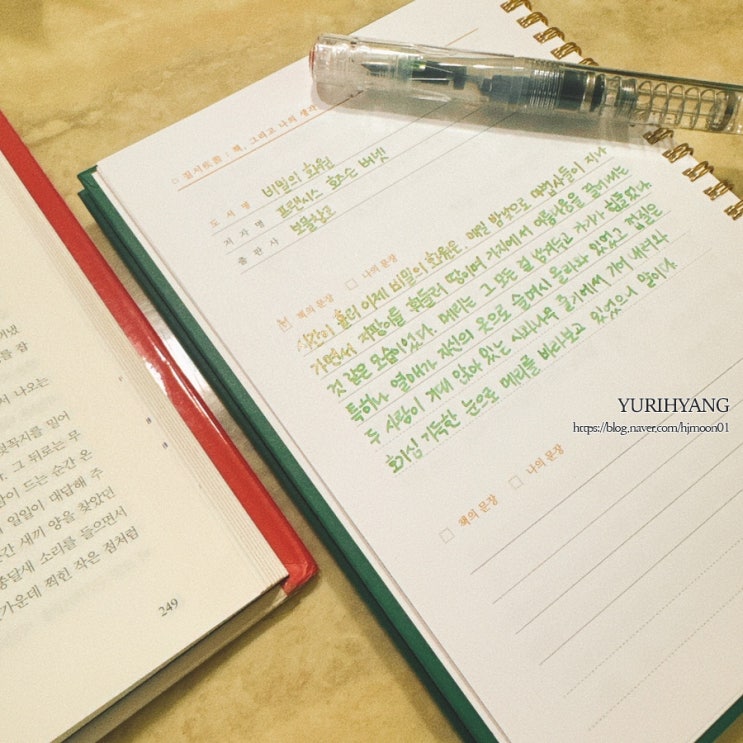 질서있음 : 책, 그리고 나의 생각
도서명 비밀의 화원
저자명 프랜시스 호즈슨 버넷
출판사 보물창고
책의 문장 나의 문장
시간이 흘러 이제 비밀의 화원은 매일 밤 마법사들이 지나
가면서 지팡이를 휘둘러 땅이며 가지에서 아름다움을 끌어내는
것 같은 모습이었다. 메리는 그 모든 걸 남겨두고 가기가 힘들었다.
특히나 열매가 자신의 옷으로 슬며시 올라와 있었고 검댕은
두 사람이 기대 앉아 있는 사과나무 줄기에서 기어 내려와
호기심 가득한 눈으로 메리를 바라보고 있었으니 말이다.
책의 문장 나의 문장
YURIHYANG
https://blog.naver.com/hjmoon01
를 참
서 나오는
꼭지를 밀어
그 뒤로는 무
이 드는 순간 온
일일이 대답해 주
간 새끼 양을 찾았던
종달새 소리를 들으면서
가운데 찍힌 작은 점처럼
249